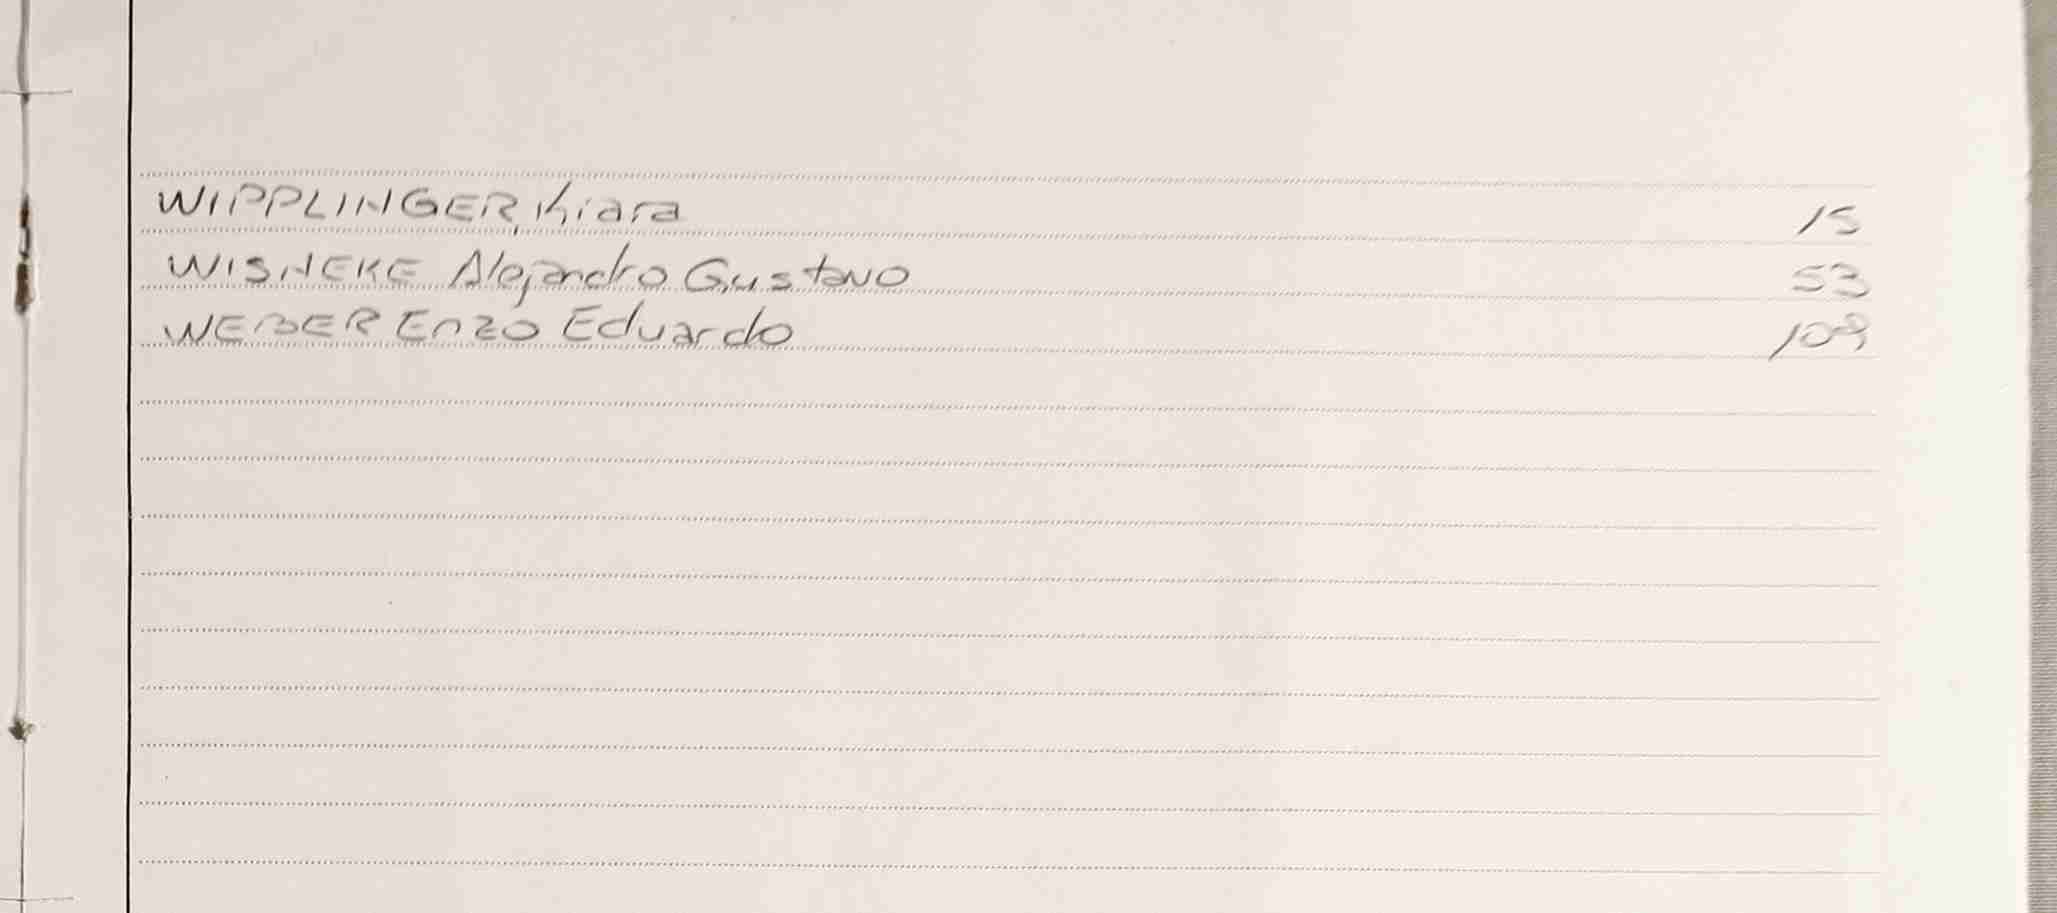 WIPPLINGER, Kiara 15
WISNEKE Alejandro Gustavo 53
WEBER Enzo Eduardo 109